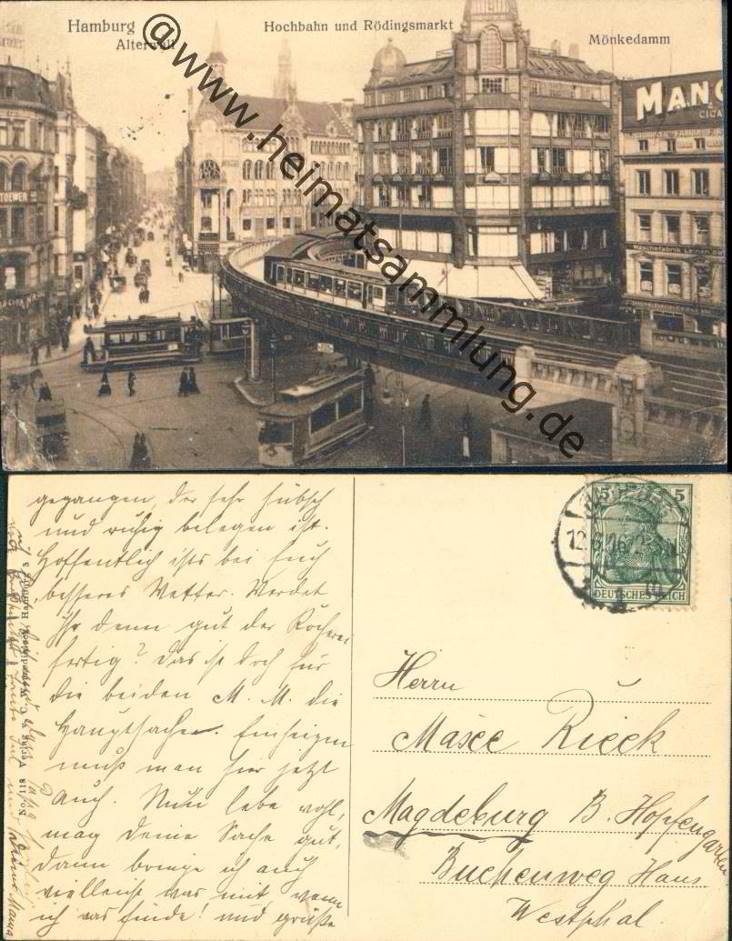 Hamburg
Alterwall
Hochbahn und Rödingsmarkt
Mönkedamm
@www.heimatsammlung.de
MANO
CIGA
gegangen, der sehr hübsch
und ruhig belegen ist.
Hoffentlich ists bei Euch
besseres Wetter. Werdet
Ihr denn gut der Kocherei
fertig? Das ist doch für
die beiden M. M. die
Hauptsache. Einheizen
muß man hier jetzt
auch. Nun lebe wohl,
mag deine Sache gut,
dann bringe ich auch
vielleicht was mit, wenn
ich was finde! und grüße
5 5
DEUTSCHES REICH
Herrn
Rieck
Magdeburg B. Hopfengarten
Buchenweg Haus
Westphal.